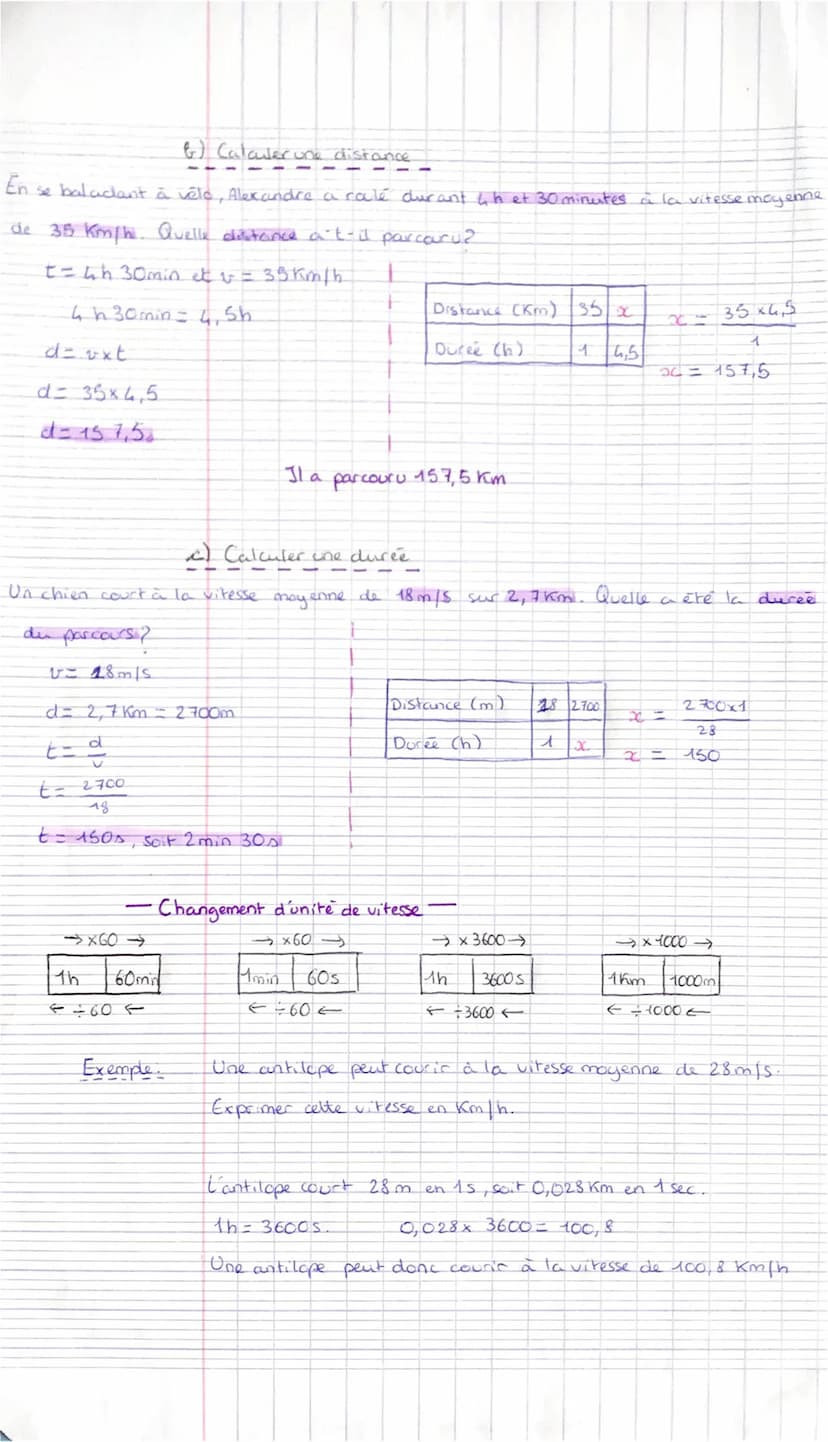 b) Calculer une distance
En se baladant à vélo, Alexandre a roulé durant 4h et 30 minutes à la vitesse moyenne
de 35 Km/h. Quelle distance a-t-il parcaru?
t = 4h 30min et v = 35 Km/h
4 h 30min = 4,5h
d = v×t
d = 35×4,5
d = 157,5
Distance (Km) 35 x
Durée (h) 1 4,5
x = 35×4,5 / 1
x = 157,5
Il a parcouru 157,5 Km
c) Calculer une durée
Un chien court à la vitesse moyenne de 18m/s sur 2,7 Km. Quelle a été la durée
du parcours?
v = 18m/s
d = 2,7 Km = 2700m
t = d / v
t = 2700 / 18
t = 150s, soit 2min 30s
Distance (m) 18 2700
Durée (h) 1 x
x = 2700×1 / 28
x = 150
— Changement d'unité de vitesse —
→ ×60 → → ×60 → → × 3600 → → × 1000 →
1h 60min 1min 60s 1h 3600s 1Km 1000m
← ÷60 ← ← ÷60 ← ← ÷3600 ← ← ÷1000 ←
Exemple: Une antilope peut courir à la vitesse moyenne de 28m/s.
Exprimer cette vitesse en Km/h.
L'antilope court 28m en 1s, soit 0,028 Km en 1 sec.
1h = 3600s. 0,028× 3600 = 100,8
Une antilope peut donc courir à la vitesse de 100,8 Km/h